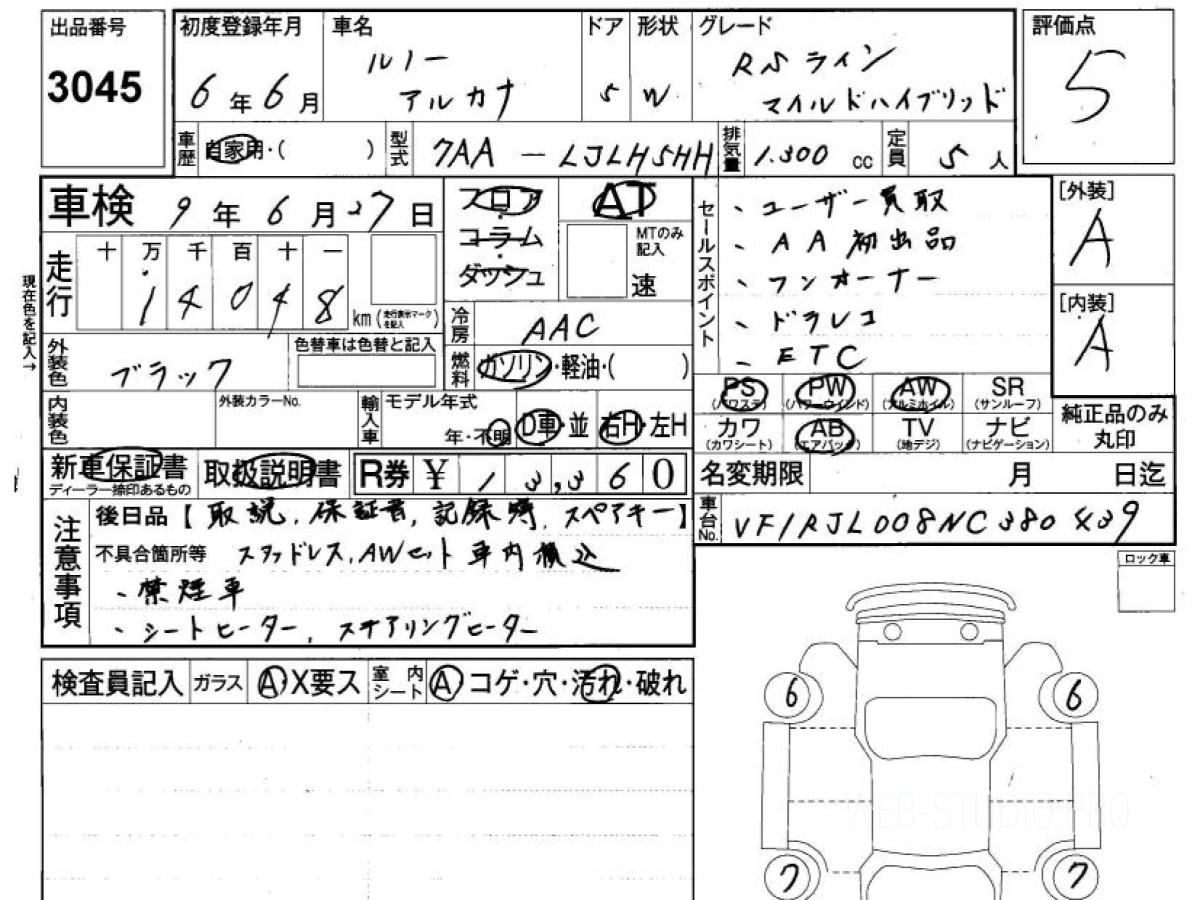 出品番号
3045
初度登録年月
6年6月
車名
ルノー
アルカナ
ドア
5
形状
W
グレード
RSライン
マイルドハイブリッド
評価点
5
車歴
自家用・( )
型式
7AA-LJLH5HH
排気量
1.300 cc
定員
5人
車検
9年6月27日
フロア
コラム
ダッシュ
AT
MTのみ記入
速
セールスポイント
・ユーザー買取
・AA初出品
・ワンオーナー
・ドラレコ
・ETC
[外装]
A
[内装]
A
現在色を記入→
走行
十 万 千 百 十 一
1 4 0 4 8
km (走行表示マークを記入)
冷房
AAC
外装色
ブラック
色替車は色替と記入
燃料
ガソリン・軽油・( )
内装色
外装カラーNo.
輸入車
モデル年式
年・不明
D車・並
右H・左H
PS
(パワステ)
PW
(パワーウインド)
AW
(アルミホイル)
SR
(サンルーフ)
カワ
(カワシート)
AB
(エアバッグ)
TV
(地デジ)
ナビ
(ナビゲーション)
純正品のみ
丸印
新車保証書
ディーラー捺印あるもの
取扱説明書
R券 ¥ 13,360
名変期限 月 日迄
注意事項
後日品【取説, 保証書, 記録簿, スペアキー】
不具合箇所等 スタッドレス, AWセット車内積込
・禁煙車
・シートヒーター, ステアリングヒーター
車台No.
VF1RJL008NC380439
ロック車
検査員記入
ガラス
A・X要ス
室内シート
A コゲ・穴・汚れ・破れ
6
6
7
7
WEB-STUDIO.PRO